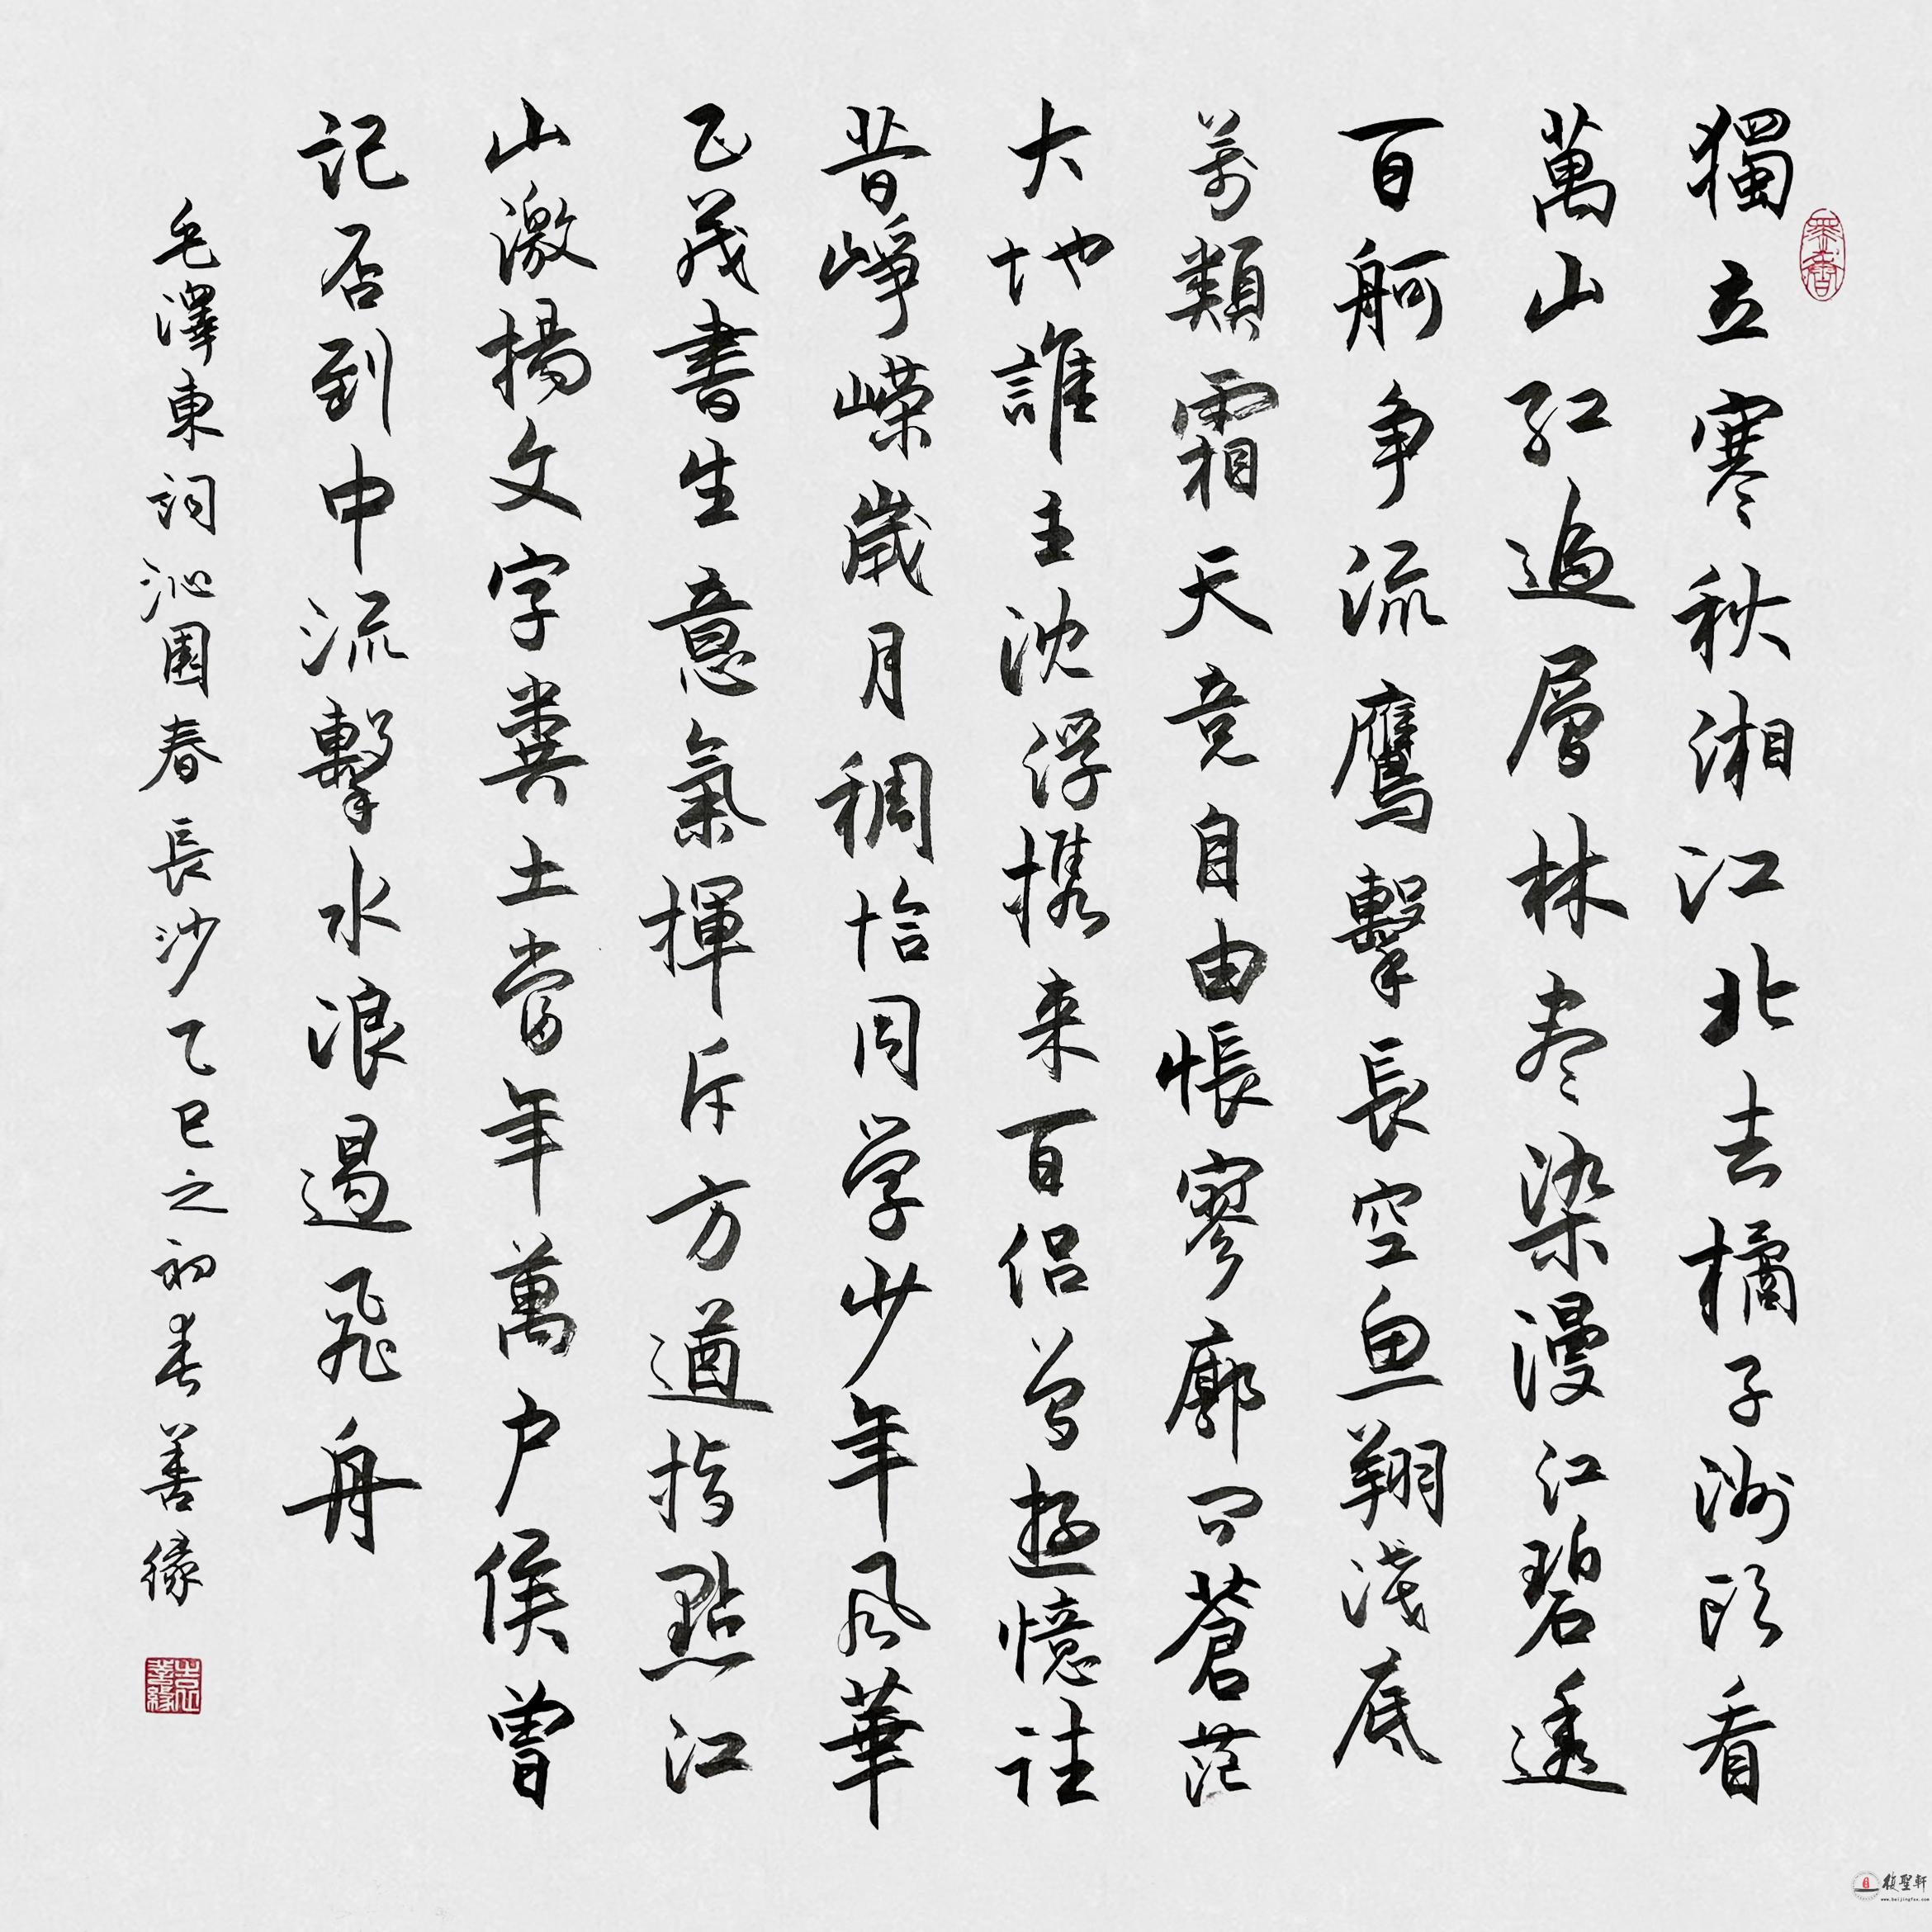 獨立寒秋湘江北去橘子洲頭看
萬山紅遍層林尽染漫江碧透
百舸争流鷹擊長空魚翔淺底
萬類霜天竞自由悵寥廓問蒼茫
大地誰主沈浮携来百侣曾遊憶往
昔崢嶸歲月稠恰同学少年風華
正茂書生意氣揮斥方遒指點江
山激揚文字糞土當年萬户侯曾
記否到中流擊水浪遏飛舟
毛澤東詞沁園春長沙乙巳之初春善緣
墨香